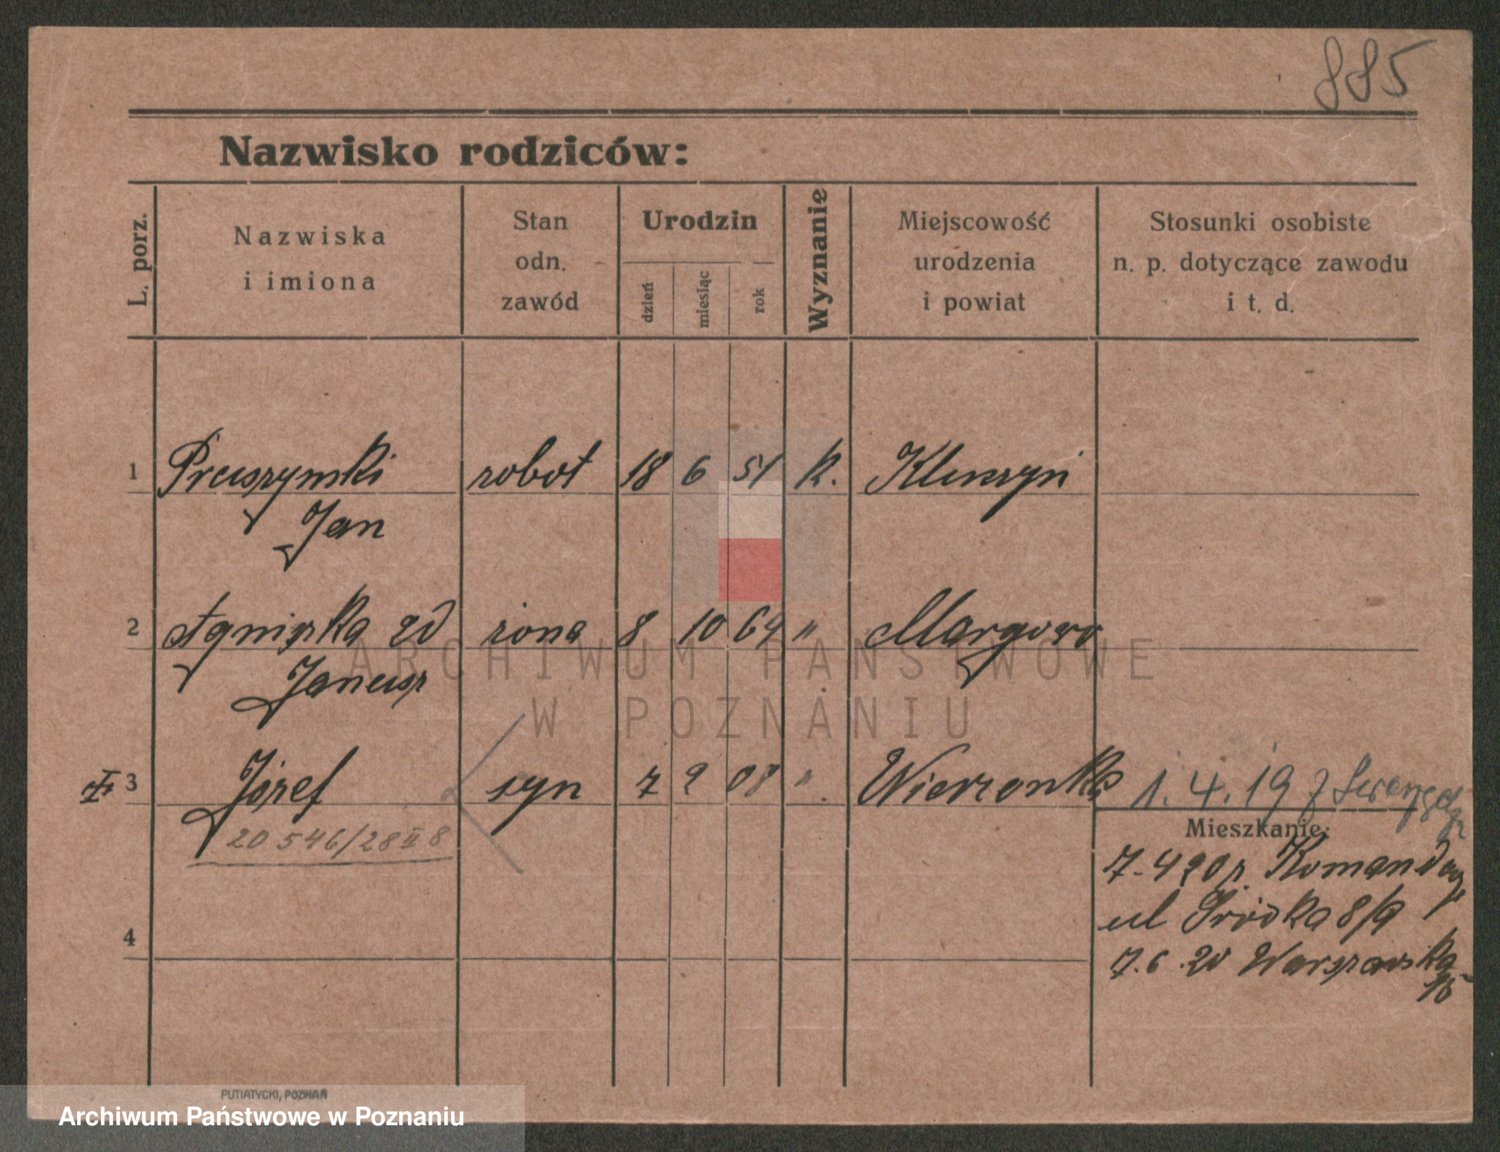 885
Nazwisko rodziców:
L. porz.
Nazwiska
i imiona
Stan
odn.
zawód
Urodzin
dzień
miesiąc
rok
Wyznanie
Miejscowość
urodzenia
i powiat
Stosunki osobiste
n. p. dotyczące zawodu
i t. d.
1 Pruszymski robot 18 6 51 k.
Jan
2 Agniszka zd żona 8 10 64 " Margowo
Janusz
3 Józef syn 7 9 08 " Wierzonka 1.4.19 z
20 546/28 II 8
Mieszkanie:
7.4 20
ul Śródka 8/9
4
7.6.20 Warszawska
15
PUTIATYCKI, POZNAŃ
ARCHIWUM PAŃSTWOWE
W POZNANIU
Archiwum Państwowe w Poznaniu